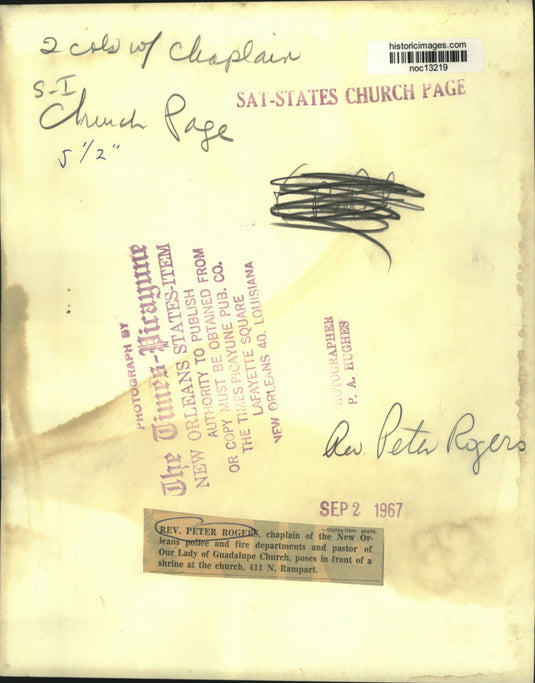 2 cols w/ Chaplain
historicimages.com
noc13219
S-I
SAT-STATES CHURCH PAGE
Church Page
5 1/2"
PHOTOGRAPH BY
The Times-Picayune
NEW ORLEANS STATES-ITEM
AUTHORITY TO PUBLISH
OR COPY MUST BE OBTAINED FROM
THE TIMES PICAYUNE PUB. CO.
LAFAYETTE SQUARE
NEW ORLEANS 40, LOUISIANA
PHOTOGRAPHER
P. A. HUGHES
Rev. Peter Rogers
SEP 2 1967
—States-Item photo.
REV. PETER ROGERS, chaplain of the New Or-
leans police and fire departments and pastor of
Our Lady of Guadalupe Church, poses in front of a
shrine at the church, 411 N. Rampart.